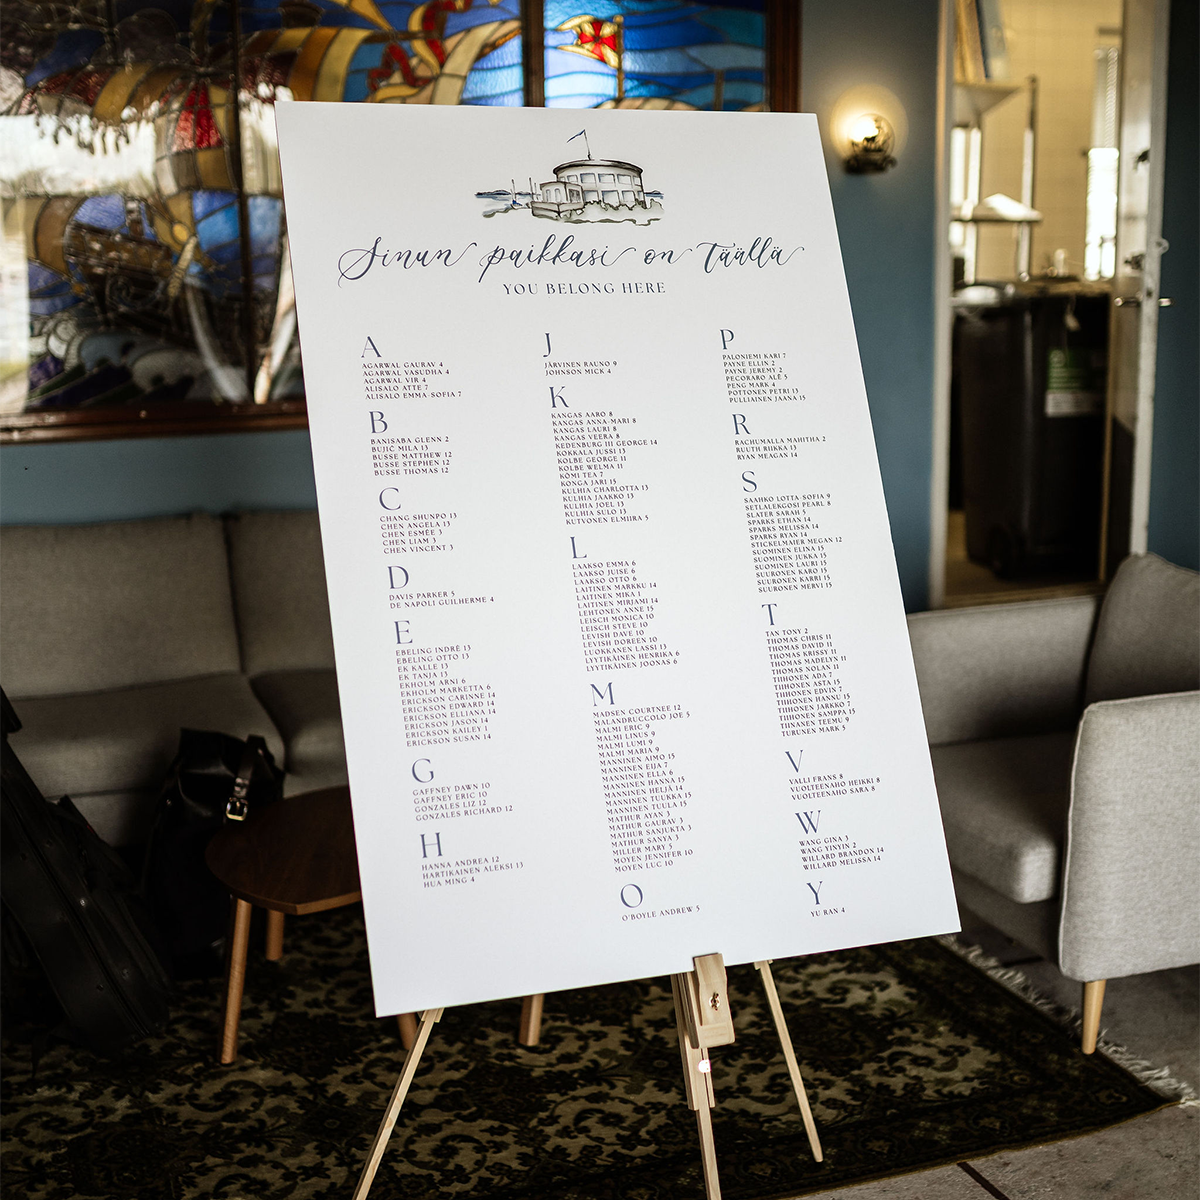 Sinun paikkasi on täällä
YOU BELONG HERE
A
AGARWAL GAURAV 4
AGARWAL VASUDHA 4
AGARWAL VIR 4
ALISALO ATTE 7
ALISALO EMMA-SOFIA 7
B
BANISABA GLENN 2
BUJIĆ MILA 13
BUSSE MATTHEW 12
BUSSE STEPHEN 12
BUSSE THOMAS 12
C
CHANG SHUNPO 13
CHEN ANGELA 13
CHEN ESMÉE 3
CHEN LIAM 3
CHEN VINCENT 3
D
DAVIS PARKER 5
DE NAPOLI GUILHERME 4
E
EBELING INDRĖ 13
EBELING OTTO 13
EK KALLE 13
EK TANJA 13
EKHOLM ARNI 6
EKHOLM MARKETTA 6
ERICKSON CARINNE 14
ERICKSON EDWARD 14
ERICKSON ELLIANA 14
ERICKSON JASON 14
ERICKSON KAILEY 1
ERICKSON SUSAN 14
G
GAFFNEY DAWN 10
GAFFNEY ERIC 10
GONZALES LIZ 12
GONZALES RICHARD 12
H
HANNA ANDREA 12
HARTIKAINEN ALEKSI 13
HUA MING 4
J
JÄRVINEN RAUNO 9
JOHNSON MICK 4
K
KANGAS AARO 8
KANGAS ANNA-MARI 8
KANGAS LAURI 8
KANGAS VEERA 8
KEDENBURG III GEORGE 14
KOKKALA JUSSI 13
KOLBE GEORGE 11
KOLBE WELMA 11
KÖMI TEA 7
KONGA JARI 15
KULHIA CHARLOTTA 13
KULHIA JAAKKO 13
KULHIA JOEL 13
KULHIA SULO 13
KUTVONEN ELMIIRA 5
L
LAAKSO EMMA 6
LAAKSO JUISE 6
LAAKSO OTTO 6
LAITINEN MARKKU 14
LAITINEN MIKA 1
LAITINEN MIRJAMI 14
LEHTONEN ANNE 15
LEISCH MONICA 10
LEISCH STEVE 10
LEVISH DAVE 10
LEVISH DOREEN 10
LUOKKANEN LASSI 13
LYYTIKÄINEN HENRIKA 6
LYYTIKÄINEN JOONAS 6
M
MADSEN COURTNEE 12
MALANDRUCCOLO JOE 5
MALMI ERIC 9
MALMI LINUS 9
MALMI LUMI 9
MALMI MARIA 9
MANNINEN AIMO 15
MANNINEN EIJA 7
MANNINEN ELLA 6
MANNINEN HANNA 15
MANNINEN HELJÄ 14
MANNINEN TUUKKA 15
MANNINEN TUULA 15
MATHUR AYAN 3
MATHUR GAURAV 3
MATHUR SANJUKTA 3
MATHUR SANYA 3
MILLER MARY 5
MOYEN JENNIFER 10
MOYEN LUC 10
O
O'BOYLE ANDREW 5
P
PALONIEMI KARI 7
PAYNE ELLIN 2
PAYNE JEREMY 2
PECORARO ALÉ 5
PENG MARK 4
POTTONEN PETRI 13
PULLIAINEN JAANA 15
R
RACHUMALLA MAHITHA 2
RUUTH RIIKKA 13
RYAN MEAGAN 14
S
SAAHKO LOTTA-SOFIA 9
SETLALEKGOSI PEARL 8
SLATER SARAH 5
SPARKS ETHAN 14
SPARKS MELISSA 14
SPARKS RYAN 14
STICKELMAIER MEGAN 12
SUOMINEN ELINA 15
SUOMINEN JUKKA 15
SUOMINEN LAURI 15
SUURONEN KARO 15
SUURONEN KARRI 15
SUURONEN MERVI 15
T
TAN TONY 2
THOMAS CHRIS 11
THOMAS DAVID 11
THOMAS KRISSY 11
THOMAS MADELYN 11
THOMAS NOLAN 11
TIIHONEN ADA 7
TIIHONEN ASTA 15
TIIHONEN EDVIN 7
TIIHONEN HANNU 15
TIIHONEN JARKKO 7
TIIHONEN SAMPPA 15
TIINANEN TEEMU 9
TURUNEN MARK 5
V
VALLI FRANS 8
VUOLTEENAHO HEIKKI 8
VUOLTEENAHO SARA 8
W
WANG GINA 3
WANG YINYIN 2
WILLARD BRANDON 14
WILLARD MELISSA 14
Y
YU RAN 4